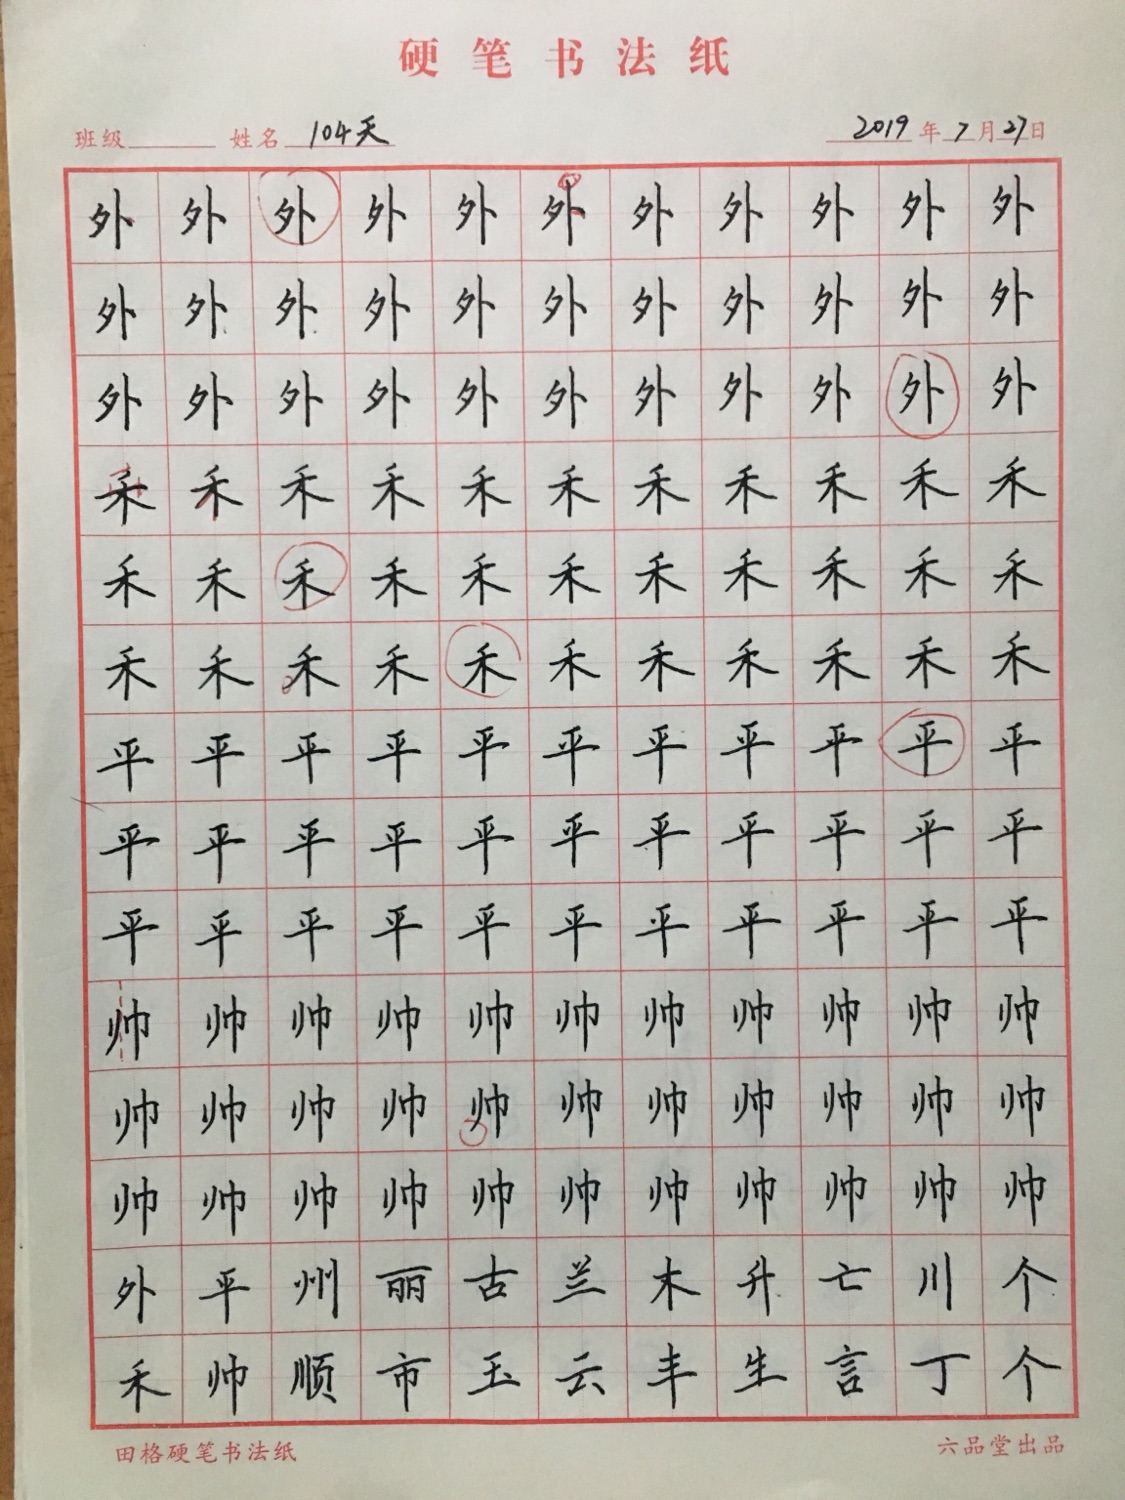 硬笔书法纸
班级 姓名 104天 2019年7月27日
外外外外外外外外外外外
外外外外外外外外外外外
外外外外外外外外外外外
禾禾禾禾禾禾禾禾禾禾禾
禾禾禾禾禾禾禾禾禾禾禾
禾禾禾禾禾禾禾禾禾禾禾
平平平平平平平平平平平
平平平平平平平平平平平
平平平平平平平平平平平
帅帅帅帅帅帅帅帅帅帅帅
帅帅帅帅帅帅帅帅帅帅帅
帅帅帅帅帅帅帅帅帅帅帅
外平州丽古兰木升亡川个
禾帅顺市玉云丰生言丁个
田格硬笔书法纸 六品堂出品